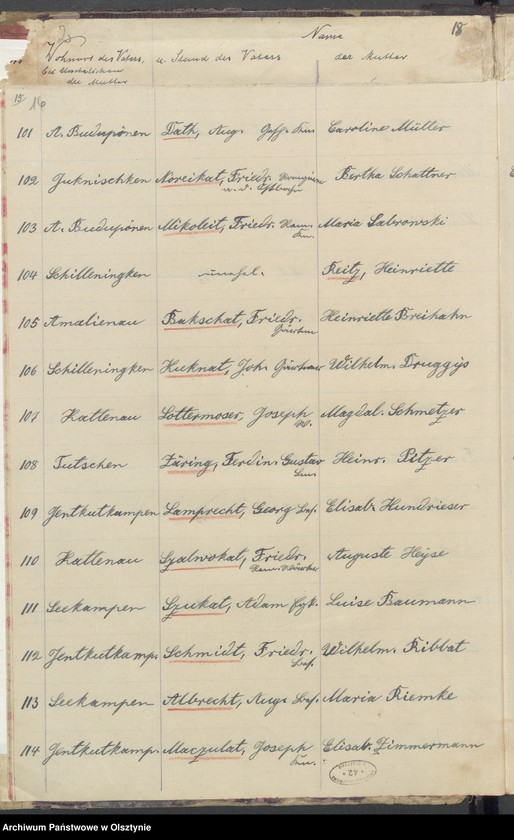 18
Name
Wohnort des Vaters, u. Stand des Vaters der Mutter
bei Unehelichen
der Mutter
15 16
101 A. Budupönen Tath, Aug. Caroline Müller
102 Juknischken Noreikat, Friedr. Bertha Schattner
103 A. Budupönen Mikoleit, Friedr. Maria Sabrowski
104 Schilleningken unehel. Reitz, Heinriette
105 Amalienau Bakschat, Friedr. Heinriette Breihahn
106 Schilleningken Kuknat, Joh. Wilhelm. Druggijs
107 Kattenau Lottermoser, Joseph Magdal. Schmetzer
108 Tutschen Züring, Ferdin. Gustav Heinr. Pitzer
109 Jentkutkampen Lamprecht, Georg Elisab. Hundrieser
110 Kattenau Szalwokat, Friedr. Auguste Heyse
111 Seekampen Szukat, Adam Luise Baumann
112 Jentkutkamp. Schmidt, Friedr. Wilhelm. Ribbat
113 Seekampen Albrecht, Aug. Maria Riemke
114 Jentkutkamp. Maczulat, Joseph Elisab. Zimmermann
Archiwum Państwowe w Olsztynie